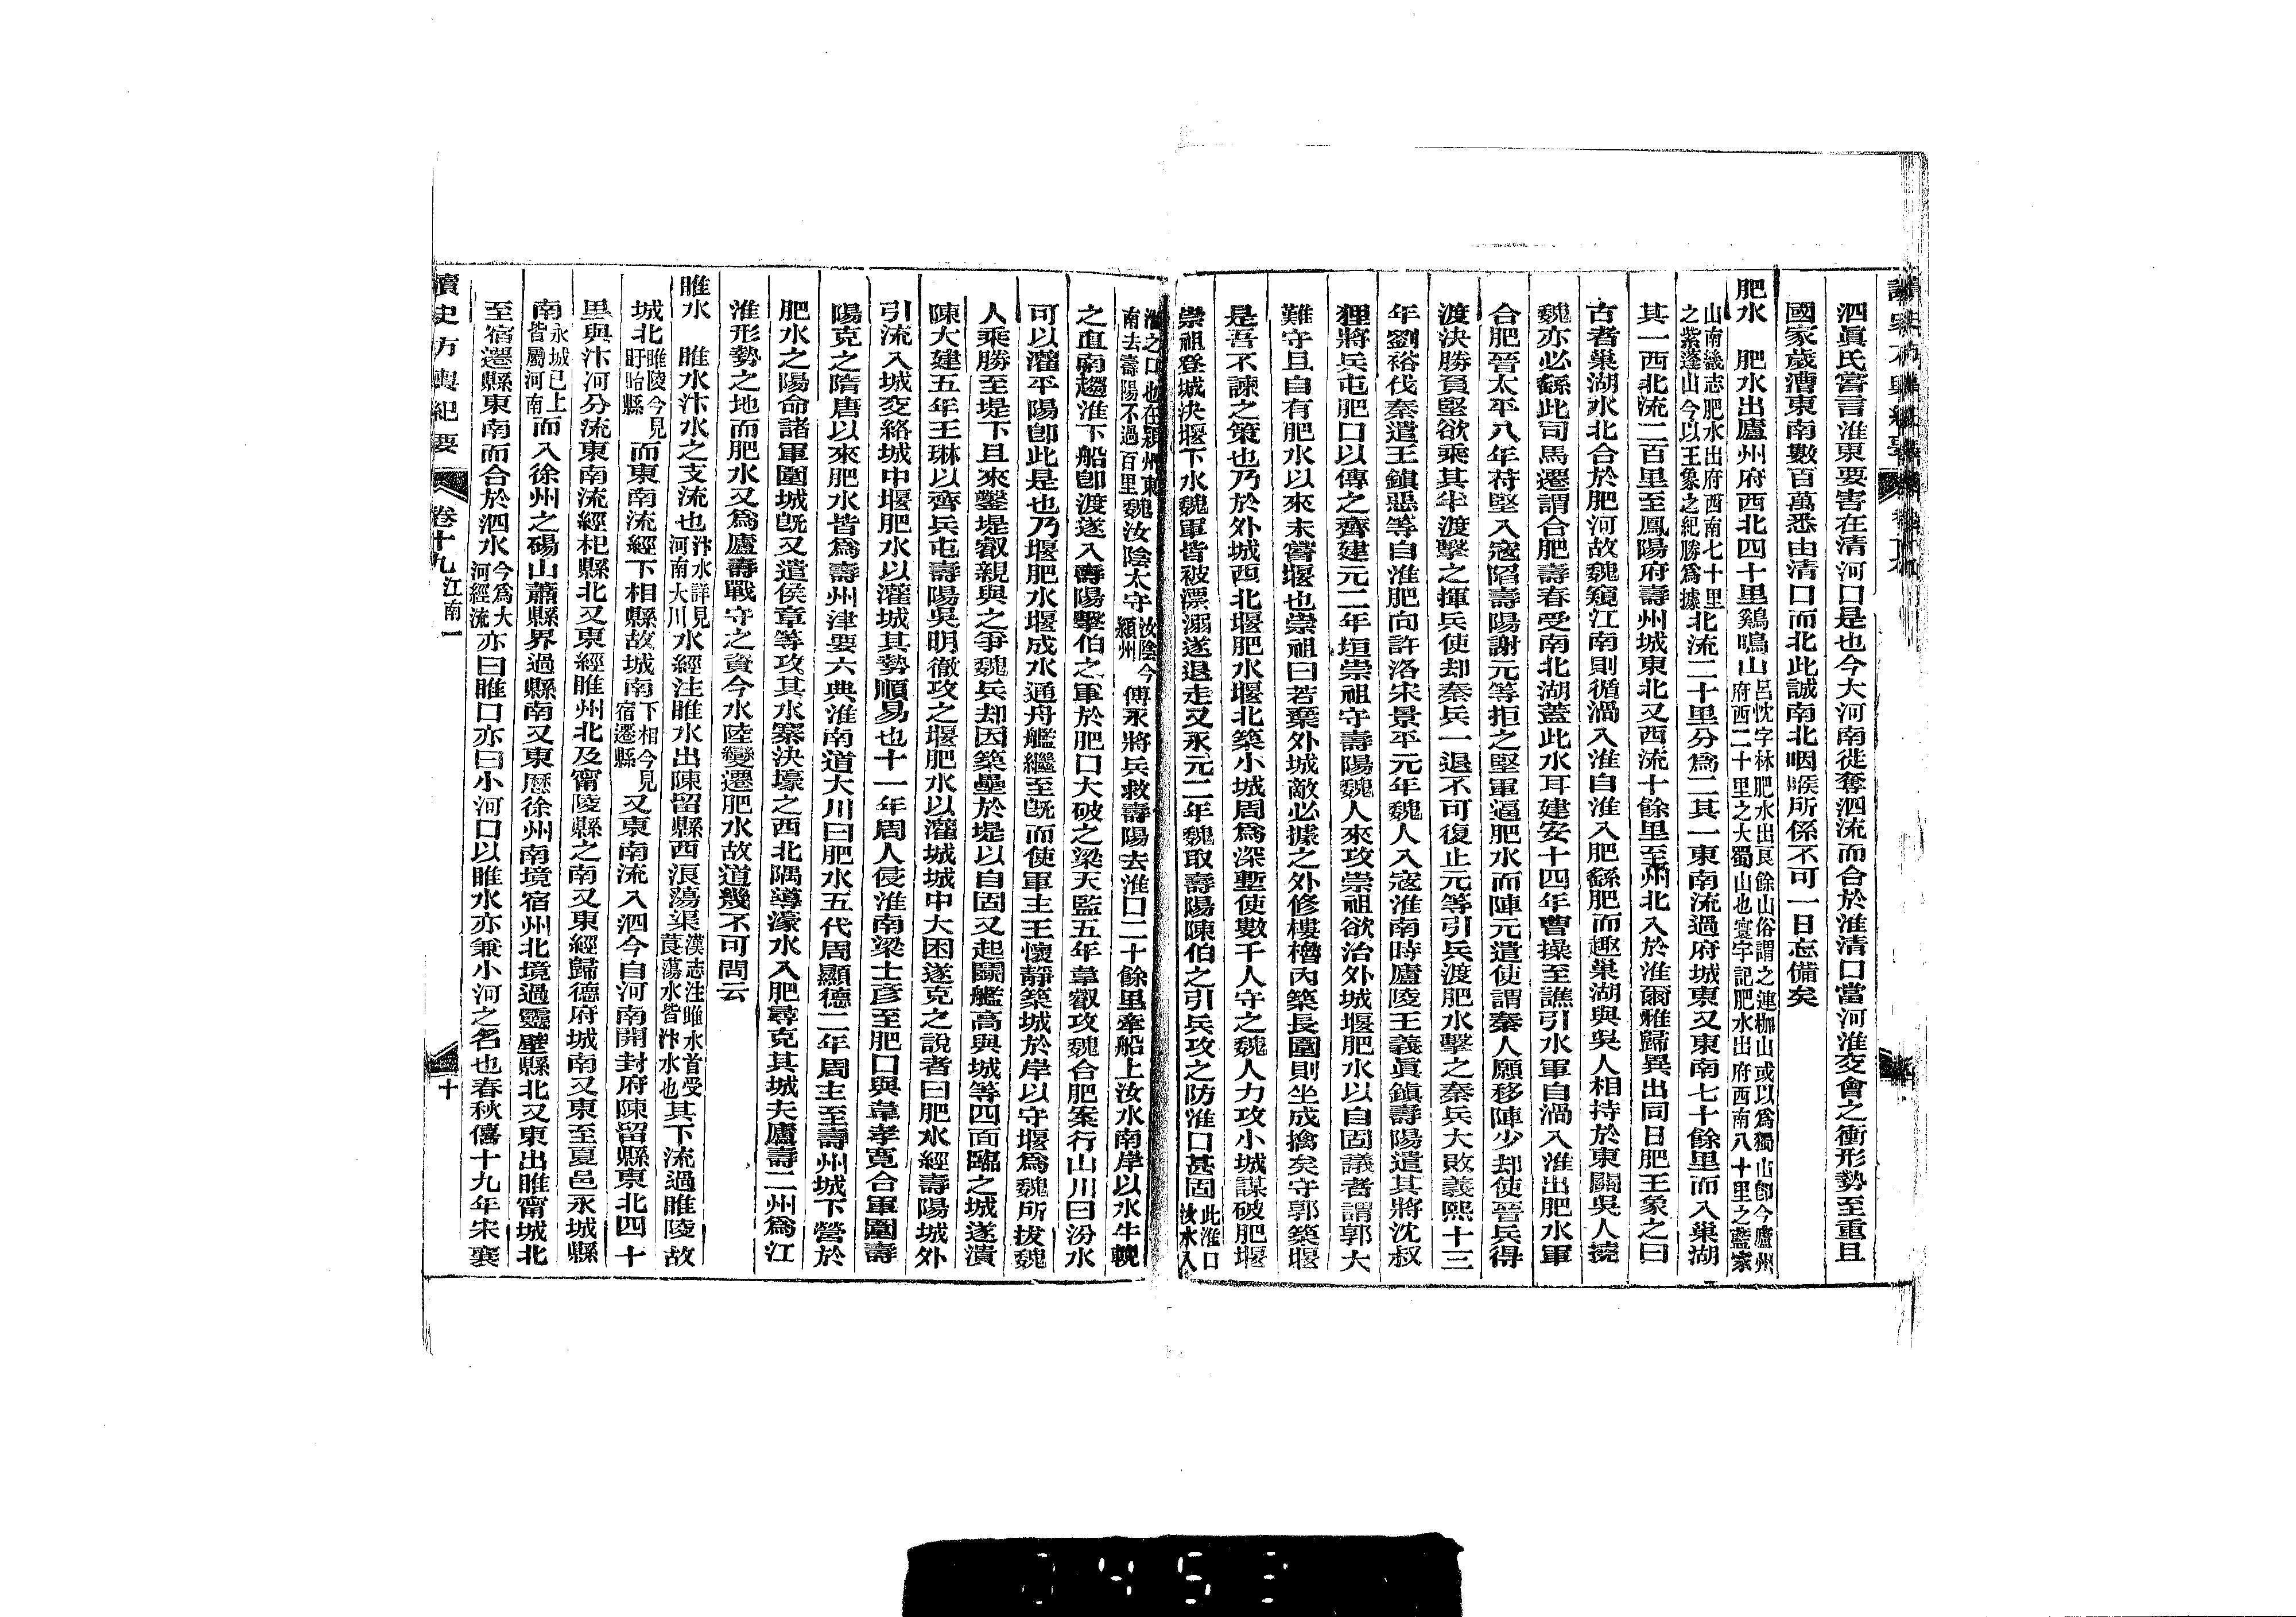 泗眞氏嘗言淮東要害在清河口是也今大河南徙奪泗流而合於淮清口當河淮交會之衝形勢至重且
國家歲漕東南數百萬悉由清口而北此誠南北咽喉所係不可一日忘備矣
肥水　肥水出廬州府西北四十里鷄鳴山呂忱字林肥水出良餘山俗謂之連枷山或以爲獨山卽今廬州府西二十里之大蜀山也寰宇記肥水出府西南八十里之藍家
山南畿志肥水出府西南七十里之紫蓬山今以王象之紀勝爲據北流二十里分爲二其一東南流過府城東又東南七十餘里而入巢湖
其一西北流二百里至鳳陽府壽州城東北又西流十餘里至州北入於淮爾雅歸異出同曰肥王象之曰
古者巢湖水北合於肥河故魏窺江南則循渦入淮自淮入肥繇肥而趣巢湖與吳人相持於東關吳人撓
魏亦必繇此司馬遷謂合肥壽春受南北湖蓋此水耳建安十四年曹操至譙引水軍自渦入淮出肥水軍
合肥晉太平八年苻堅入寇陷壽陽謝元等拒之堅軍逼肥水而陣元遣使謂秦人願移陣少却使晉兵得
渡決勝負堅欲乘其半渡擊之揮兵使却秦兵一退不可復止元等引兵渡肥水擊之秦兵大敗義熙十三
年劉裕伐秦遣王鎮惡等自淮肥向許洛宋景平元年魏人入寇淮南時廬陵王義眞鎮壽陽遣其將沈叔
狸將兵屯肥口以傳之齊建元二年垣崇祖守壽陽魏人來攻崇祖欲治外城堰肥水以自固議者謂郭大
難守且自有肥水以來未嘗堰也崇祖曰若棄外城敵必據之外修樓櫓內築長圍則坐成擒矣守郭築堰
是吾不諫之策也乃於外城西北堰肥水堰北築小城周爲深塹使數千人守之魏人力攻小城謀破肥堰
崇祖登城決堰下水魏軍皆被漂溺遂退走又永元二年魏取壽陽陳伯之引兵攻之防淮口甚固此淮口汝水入
淮之口也在潁州東南去壽陽不過百里魏汝陰太守汝陰今潁州傅永將兵救壽陽去淮口二十餘里牽船上汝水南岸以水牛輓
之直南趨淮下船卽渡遂入壽陽擊伯之軍於肥口大破之梁天監五年韋叡攻魏合肥案行山川曰汾水
可以灌平陽卽此是也乃堰肥水堰成水通舟艦繼至旣而使軍主王懷靜築城於岸以守堰爲魏所拔魏
人乘勝至堤下且來鑿堤叡親與之爭魏兵却因築壘於堤以自固又起鬭艦高與城等四面臨之城遂潰
陳大建五年王琳以齊兵屯壽陽吳明徹攻之堰肥水以灌城城中大困遂克之說者曰肥水經壽陽城外
引流入城交絡城中堰肥水以灌城其勢順易也十一年周人侵淮南梁士彥至肥口與韋孝寬合軍圍壽
陽克之隋唐以來肥水皆爲壽州津要六典淮南道大川曰肥水五代周顯德二年周主至壽州城下營於
肥水之陽命諸軍圍城旣又遣侯章等攻其水寨決壕之西北隅導濠水入肥尋克其城夫廬壽二州爲江
淮形勢之地而肥水又爲廬壽戰守之資今水陸變遷肥水故道幾不可問云
睢水　睢水汴水之支流也汴水詳見河南大川水經注睢水出陳留縣西浪蕩渠漢志注睢水首受莨蕩水皆汴水也其下流過睢陵故
城北睢陵今見盱眙縣而東南流經下相縣故城南下相今見宿遷縣又東南流入泗今自河南開封府陳留縣東北四十
里與汴河分流東南流經杞縣北又東經睢州北及甯陵縣之南又東經歸德府城南又東至夏邑永城縣
南永城已上皆屬河南而入徐州之碭山蕭縣界過縣南又東歷徐州南境宿州北境過靈壁縣北又東出睢甯城北
至宿遷縣東南而合於泗水今爲大河經流亦曰睢口亦曰小河口以睢水亦兼小河之名也春秋僖十九年宋襄
讀史方輿紀要　卷十九　江南一　十